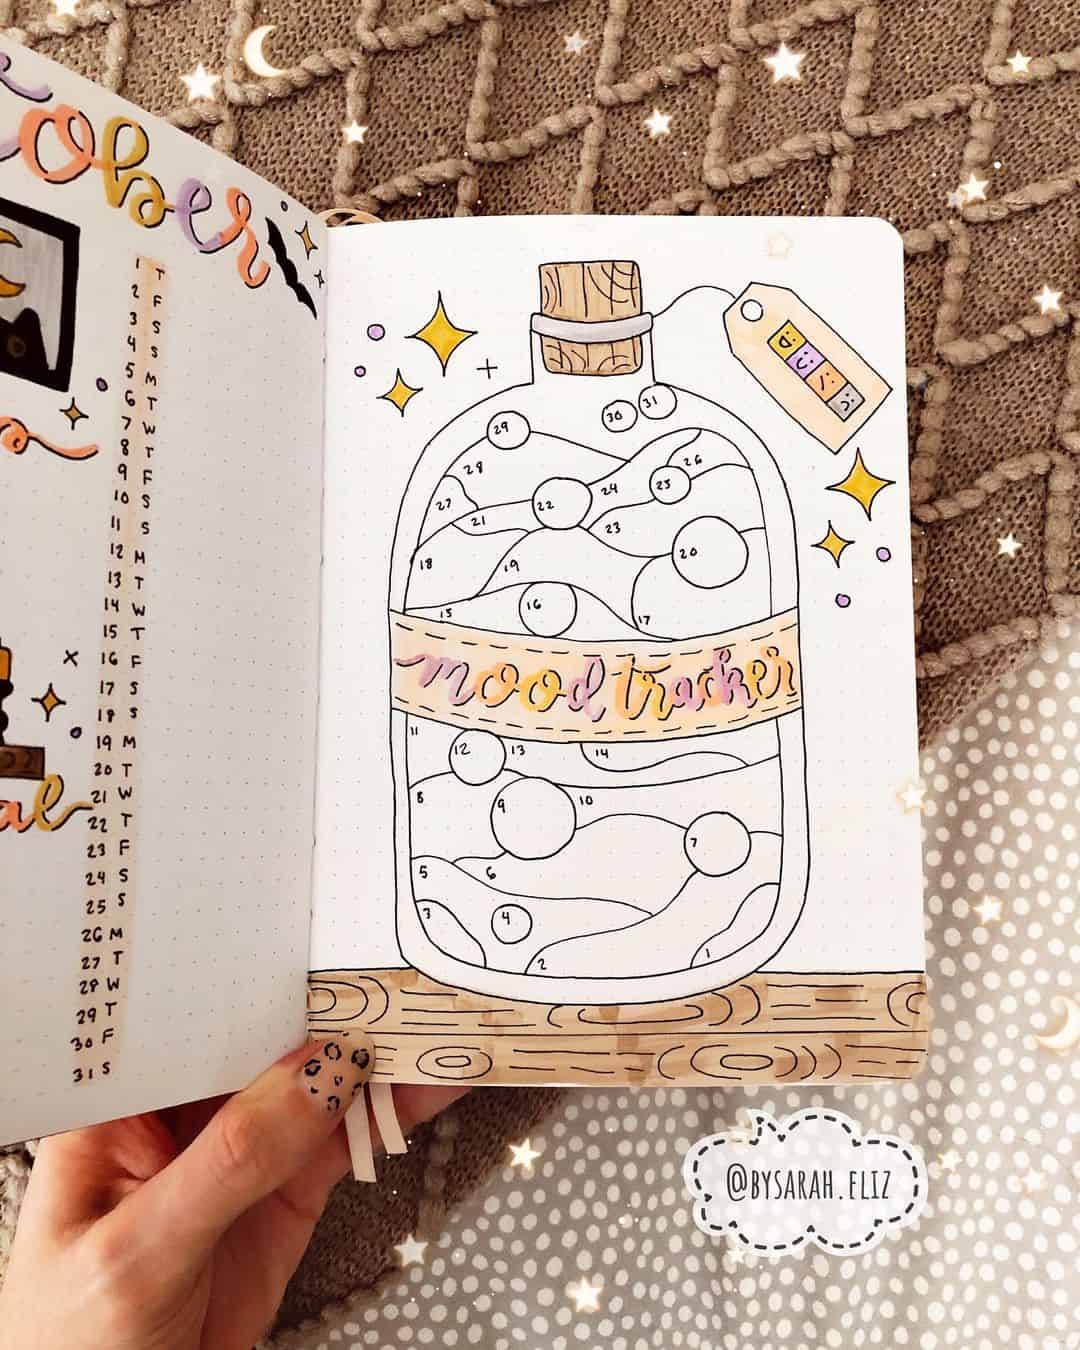 ober
1 T
2 F
3 S
4 S
5 M
6 T
7 W
8 T
9 F
10 S
11 S
12 M
13 T
14 W
15 T
16 F
17 S
18 S
19 M
20 T
21 W
22 T
23 F
24 S
25 S
26 M
27 T
28 W
29 T
30 F
31 S
al
31
30
29
28
26
25
24
27
22
21
23
20
18
19
16
15
17
mood tracker
11
12
13
14
8
9
10
7
5
6
3
4
2
1
@BYSARAH.ELIZ